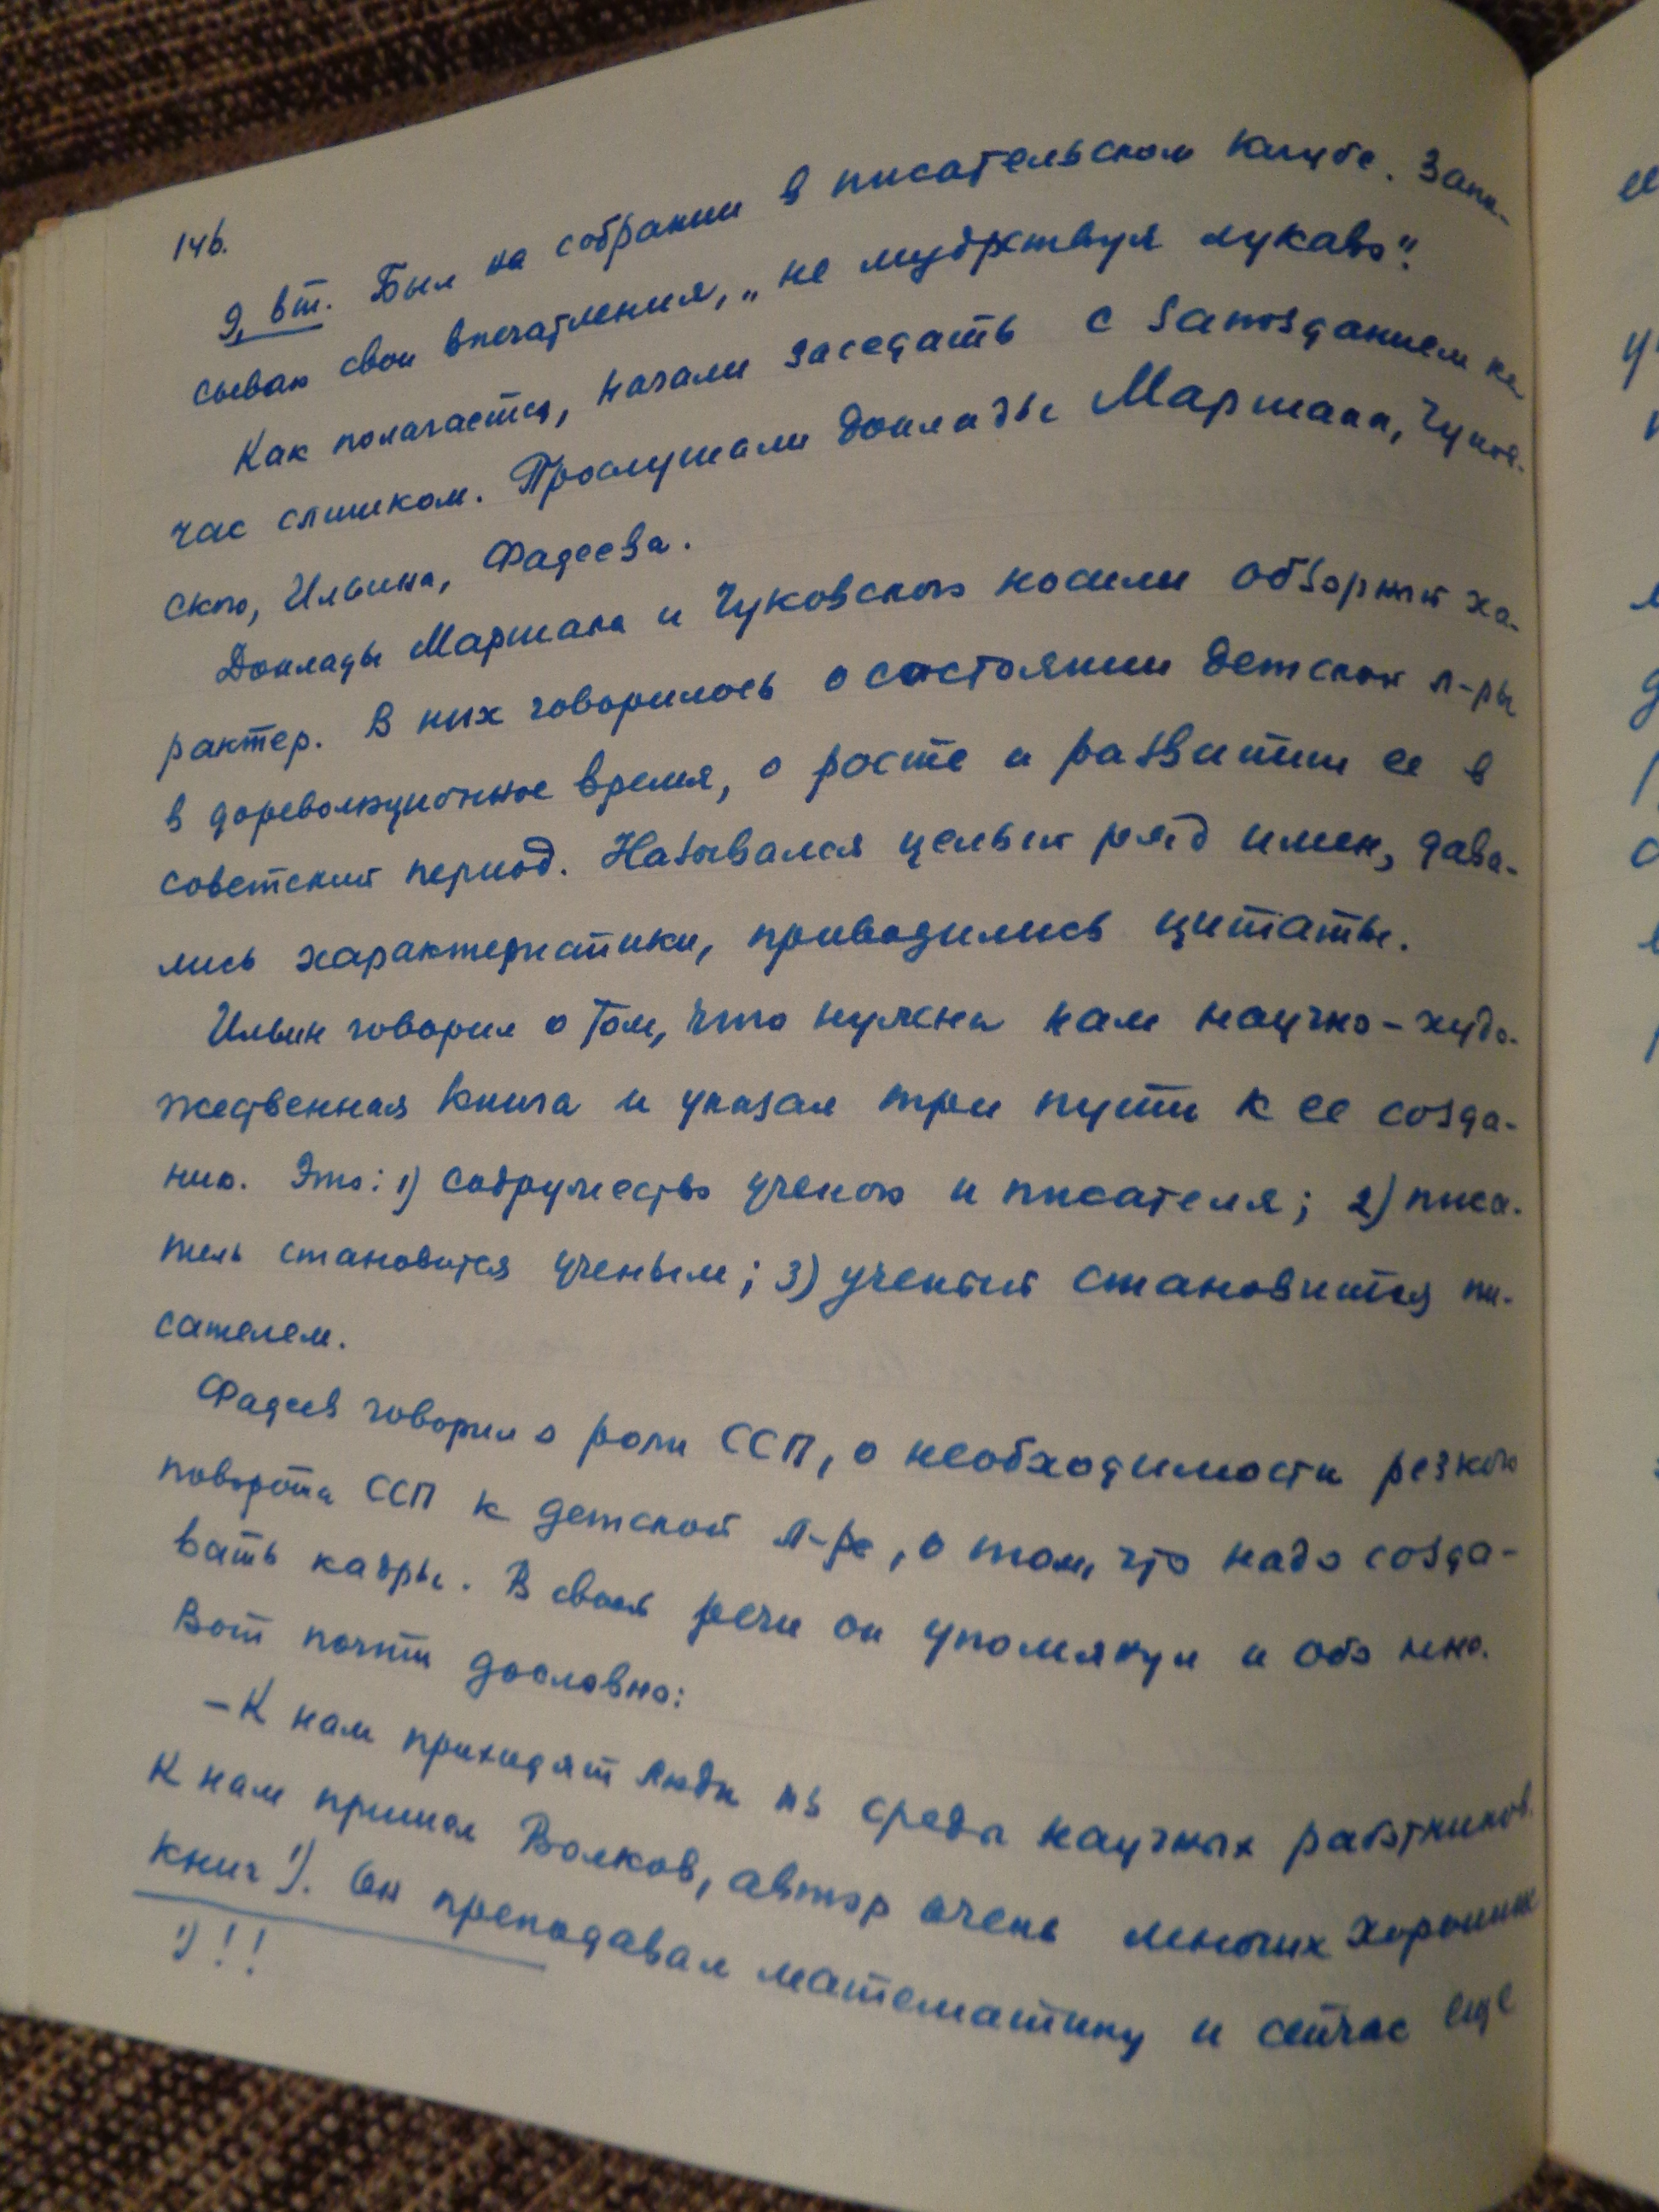 146.
9, вт. Был на собрании в писательском клубе. Запи-
сываю свои впечатления, „не мудрствуя лукаво".
Как полагается, начали заседать с запозданием на
час слишком. Прослушали доклады Маршака, Чуков-
ского, Ильина, Фадеева.
Доклады Маршака и Чуковского носили обзорный ха-
рактер. В них говорилось о состоянии детской л-ры
в дореволюционное время, о росте и развитии ее в
советский период. Назывался целый ряд имен, дава-
лись характеристики, приводились цитаты.
Ильин говорил о том, что нужна нам научно-худо-
жественная книга и указал три пути к ее созда-
нию. Это: 1) содружество ученого и писателя; 2) писа-
тель становится ученым; 3) ученый становится пи-
сателем.
Фадеев говорил о роли ССП, о необходимости резкого
поворота ССП к детской л-ре, о том, что надо созда-
вать кадры. В своей речи он упомянул и обо мне.
Вот почти дословно:
– К нам приходят люди из среды научных работников.
К нам пришел Волков, автор очень многих хороших
книг 1). Он преподавал математику и сейчас еще
1) ! !